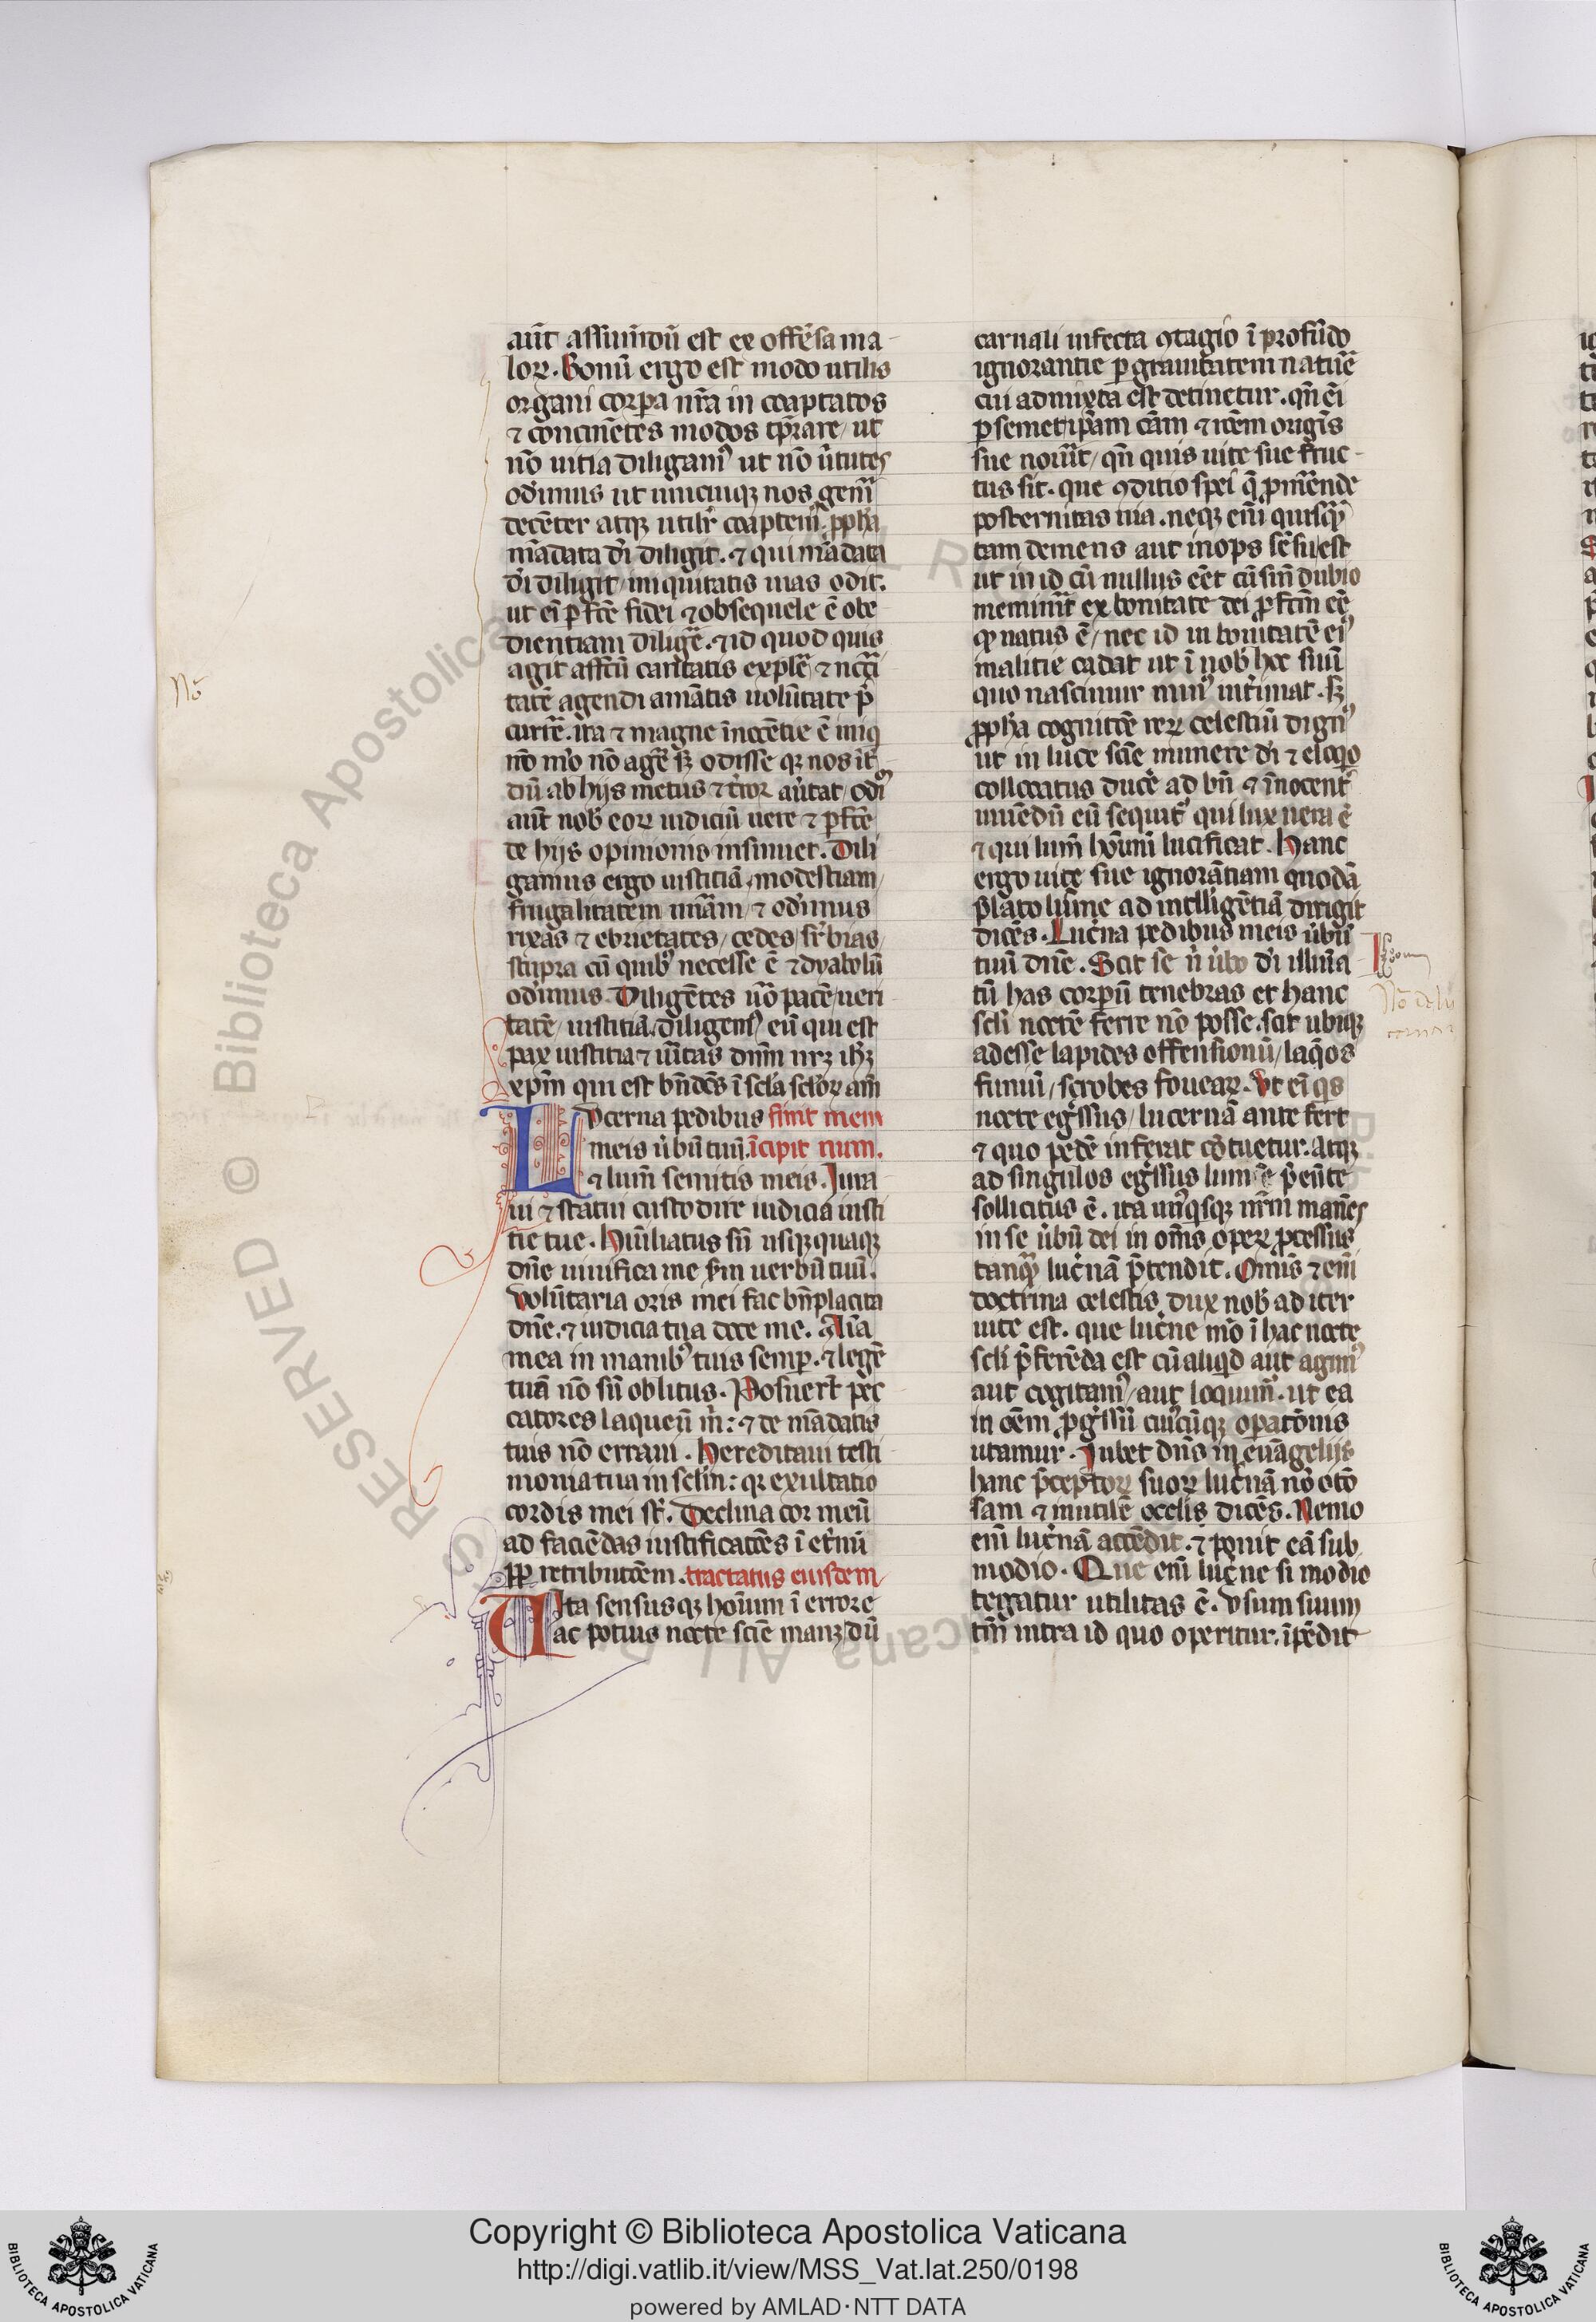 aūt assumēdū est ex offēsa ma-
loꝝ. Bonū ergo est modo utilis
organi corpa nr̄a in coaptatos
⁊ concinētes modos tp̄rare/ ut
nō uitia diligamꝰ ut nō ūtutes
odimus ut unicuiqꝫ nos genī
decēter atqꝫ utilr̄ coaptemꝰ. ꝓpħa
mādata dī diligit. ⁊ qui mādata
dī diligit/ iniquitatis uias odit.
ut ei pfc̄e fidei ⁊ obsequele ē obe
dientiam diligē. ⁊ id quod quis
agit affc̄u caritatis explē ⁊ nc̄cī
tatē agendi amātis uolūtate p̄
currē. ita ⁊ magne īnocētie ē iniq
nō mō nō agē sꝫ odisse qꝫ nos ī
dū ab hijs metus ⁊ tror aūtat/ odiū
aūt nob̄ eoꝝ iudiciū uere ⁊ pfc̄e
de hijs opinionis insinuet. Dili
gamus ergo iusticiā/ modestiam/
frugalitatem mīam/ ⁊ odimus
rixas ⁊ ebrietates/ cedes/ sr̄bias/
stupra cū quibꝰ necesse ē ⁊ dyabolū
odimus. Diligētes uō pacē/ ueri
tatē/ iustitiā/ diligemꝰ eū qui est
pax iustitia ⁊ ūitas dnm̄ nrꝫ ihꝫ
xpm̄ qui est bn̄dc̄s ī scla sclorꝝ am̄
Lvcerna pedibus finit mem
meis ūbū tuū. īcipit num.
⁊ lum̄ semitis meis. Iura
ui ⁊ statui custodire iudicia iusti
tie tue. Hūiliatus sū usqꝫquaqꝫ
dn̄e uiuifica me scdm uerbū tuū.
Volūtaria oris mei fac bn̄placita
dn̄e. ⁊ iudicia tua doce me. Aīa
mea in manibꝰ tuis semp. ⁊ legē
tuā nō sū oblitus. Posuert̄ pec
catores laqueū m̄: ⁊ de mādatis
tuis nō erraui. Hereditaui testi
monia tua in sclm̄: qꝫ exultatio
cordis mei st̄. Declina cor meū
ad faciēdas iustificatōes ī et̄nū
pp̄ retributōem. tractatus eiusdem
Vita sensusqꝫ hoīum ī errore
ac potius nocte scīe manꝫ dū
carnali infecta ꝯtagio ī profūdo
ignorantie p grauitatem natuē
cui admixta est detinetur. qn̄ ei
p semetipam cām ⁊ rōem origīs
sue nouit/ qn̄ quis uite sue fruc-
tus sit. que ꝯditio spei q̄ ꝓm̄ende
posternitas uia. neqꝫ eni quisqm̄
tam demens aut inops sēsu est
ut in id cū nullus eēt cū sīn dubio
memint̄ ex bonitate dei ꝓfc̄m eē
qꝙ natus ē/ nec id in bonitatē eiꝰ
malitie cadat ut ī nob̄ hoc suū
quo nascimur munꝰ int̄imat. sꝫ
ꝓpħa cognitōe reꝝ celestiū dignꝰ
ut in luce scīe munere dī ⁊ eloqo
collocatus ducē ad bn̄ ⁊ īnocent̄
uiuēdū eū sequitꝰ qui lux uera ē
⁊ qui lum̄ hoīum lucificat. Hanc
ergo uite sue ignorātiam quodā
p̄lato lumīe ad intelligētiā dirigit
dicēs. Lucn̄a pedibus meis ūbū
tuū dn̄e. Scit se n̄ ūbo dī illm̄a
tū has corpū tenebras et hanc
scli noctē ferre nō posse. scit ubiqꝫ
adesse lapides offensionū/ laq̄os
funiū/ scrobes foueaꝝ. Vt ei qs
nocte egs̄sus/ lucernā ante fert
⁊ quo pedē inferat cōtuetur. atqꝫ
ad singulos egs̄sus lumīe p̄eūte
sollicitus ē. ita unꝰqsqꝫ nrm̄ manēs
in se ūbū dei in om̄s opeꝝ ꝓcessus
tanqm̄ lucn̄ā p̄tendit. Omīs ⁊ enī
doctrina celestis dux nob̄ ad iter
uite est. que lucn̄e mō ī hac nocte
scli p̄ferēda est cū aliqd aut agimꝰ
aut cogitamꝰ/ aut loquim̄. ut ea
in oēm ꝓgs̄sū cuiꝰcūqꝫ opatōnis
utamur. Iubet dn̄s in euāgelijs
hanc p̄ceptoꝝ suoꝝ lucn̄ā nō otō
sam ⁊ inutilē occlis dicēs. Nemo
enī lucn̄ā accēdit. ⁊ ponit eā sub
modio. Que enī lucn̄e si modio
tegatur utilitas ē. vsum suum
tm̄ intra id quo operitur. īpēdit
Nō
Nō de lu
Copyright © Biblioteca Apostolica Vaticana
http://digi.vatlib.it/view/MSS_Vat.lat.250/0198
powered by AMLAD·NTT DATA
BIBLIOTECA APOSTOLICA VATICANA
BIBLIOTECA APOSTOLICA VATICANA